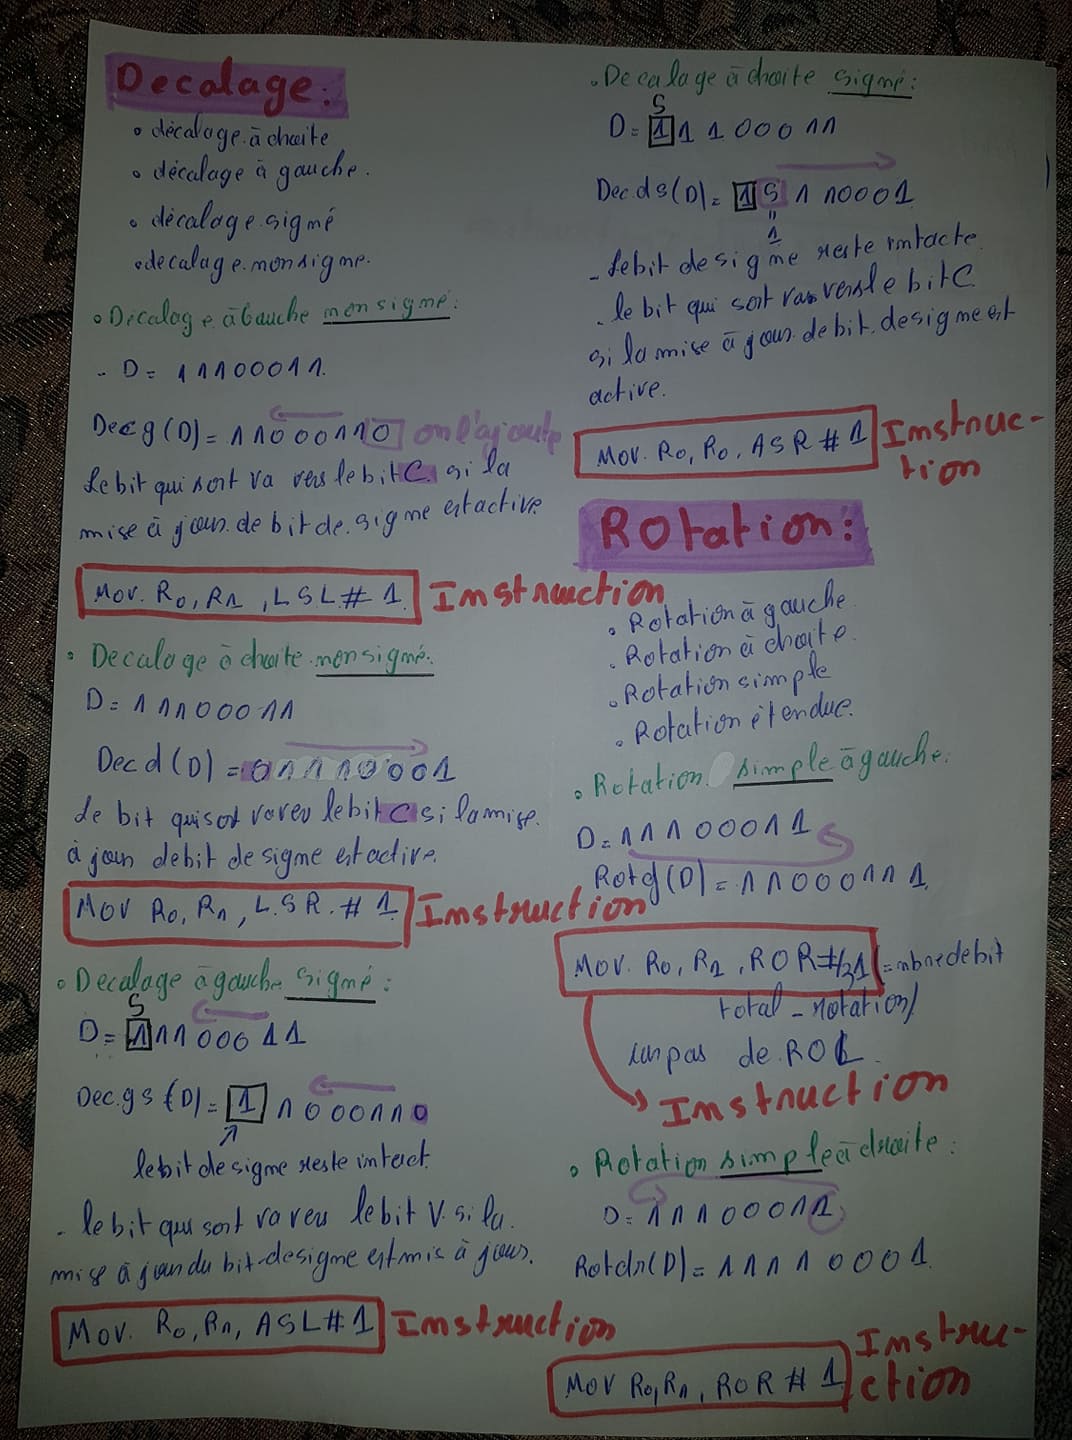 Decalage:
• décalage à droite
• décalage à gauche.
• décalage signé
• decalage non signe.
• Décalage à Gauche non signé:
- D = 11100011.
Decg(D) = 11000110 on l'ajoute
Le bit qui sort va vers le bit C si la
mise à jour de bit de signe est active
Mov. R0, R1, LSL # 1 Instruction
• Decalage à droite non signé.
D = 11100011
Decd(D) = 011110001
Le bit qui sort va vers le bit C si la mise
à jour de bit de signe est active.
MOV R0, R1, LSR. # 1 Instruction
• Decalage à gauche signé:
S
D = 11100011
Dec.gs(D) = 11000110
le bit de signe reste intact.
- le bit qui sort va vers le bit V. si la
mise à jour du bit de signe est mis à jour.
Mov. R0, R1, ASL # 1 Instruction
• Decalage à droite signé:
S
D = 11100011
Dec.ds(D) = 1S110001
=
1
- Le bit de signe reste intacte
- le bit qui sort va vers le bit C
si la mise à jour de bit de signe est
active.
Mov. R0, R0, ASR # 1 Instruc-
tion
Rotation:
• Rotation à gauche
• Rotation à droite.
• Rotation simple
• Rotation étendue.
• Rotation simple à gauche:
D = 11100011
Rotg(D) = 11000111
Mov. R0, R1, ROR #31 (= nbre de bit
total - rotation)
un pas de ROL
Instruction
• Rotation simple à droite:
D = 11100011
Rotdr(D) = 11110001
MOV R0, R1, ROR # 1 Instru-
ction